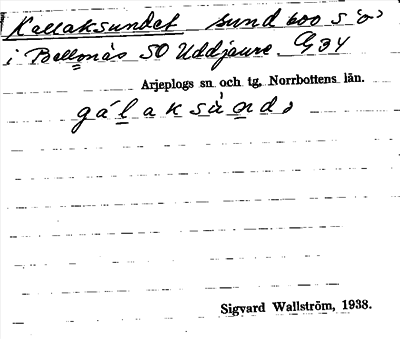 Kallaksundet sund 600 S o
i Bellonäs SO Uddjaure G 34
Arjeplogs sn och tg, Norrbottens län.
gálaksùnda
Sigvard Wallström, 1938.